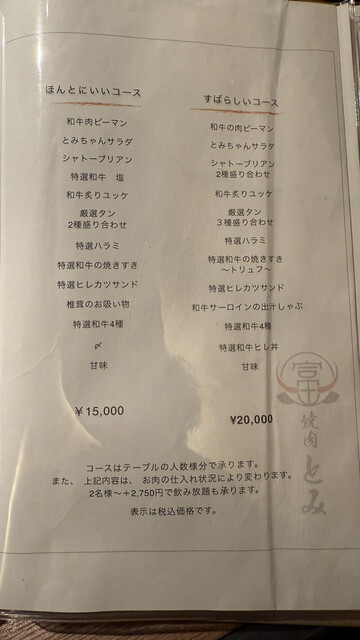 ほんとにいいコース
和牛肉ピーマン
とみちゃんサラダ
シャトーブリアン
特選和牛　塩
和牛炙りユッケ
厳選タン
2種盛り合わせ
特選ハラミ
特選和牛の焼きすき
特選ヒレカツサンド
椎茸のお吸い物
特選和牛4種
〆
甘味
￥15,000
すばらしいコース
和牛の肉ピーマン
とみちゃんサラダ
シャトーブリアン
2種盛り合わせ
和牛炙りユッケ
厳選タン
３種盛り合わせ
特選ハラミ
特選和牛の焼きすき
〜トリュフ〜
特選ヒレカツサンド
和牛サーロインの出汁しゃぶ
特選和牛4種
特選和牛ヒレ丼
甘味
¥20,000
コースはテーブルの人数様分で承ります。
また、上記内容は、お肉の仕入れ状況により変わります。
2名様〜＋2,750円で飲み放題も承ります。
表示は税込価格です。
焼肉とみ